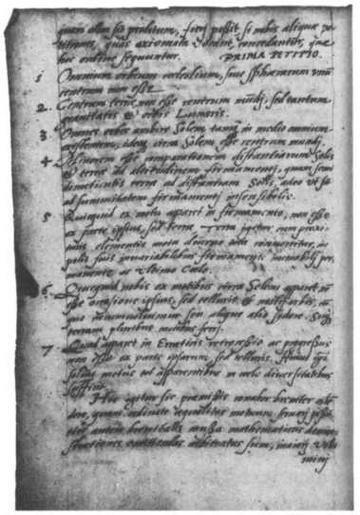 quam olim sit proditum, fieri possit, si nobis aliquae pe-
titiones, quas axiomata vocant, concedantur, quae
hoc ordine sequuntur. PRIMA PETITIO.
1 Omnium orbium caelestium, sive sphaerarum unum
centrum non esse
2. Centrum terrae non esse centrum mundi, sed tantum
gravitatis et orbis Lunaris.
3 Omnes orbes ambire Solem tamquam in medio omnium
existentem, ideoque circa Solem esse centrum mundi.
4 Minorem esse comparationem distantiarum Solis
et terrae ad altitudinem firmamenti, quam semi
dimetientis terrae ad distantiam Solis, adeo ut sit
ad summitatem firmamenti insensibilis.
5 Quicquid ex motu apparet in firmamento, non esse
ex parte ipsius, sed terrae. Terra igitur cum proxi-
mis elementis motu diurno tota convertitur, in
polis suis invariabilibus firmamento immobili per
manente ac ultimo Caelo.
6 Quicquid nobis ex motibus circa Solem apparet non
esse occasione ipsius, sed telluris et nostri orbis, cum
quo circumvolvimur ceu aliquo alio sydere. Sicque
terram pluribus motibus ferri.
7 Quod apparet in Erraticis retrocessio ac progressus
non esse ex parte ipsarum, sed telluris. Huius igitur
solius motus tot apparentibus in caelo diversitatibus
sufficit.
Hic igitur sic praemissis conabor breviter osten-
dere, quam ordinate aequalitas motuum servari possit.
Hic autem brevitatis causa mathematicas demon-
strationes omittendas arbitratus sum, maiori volu
mini